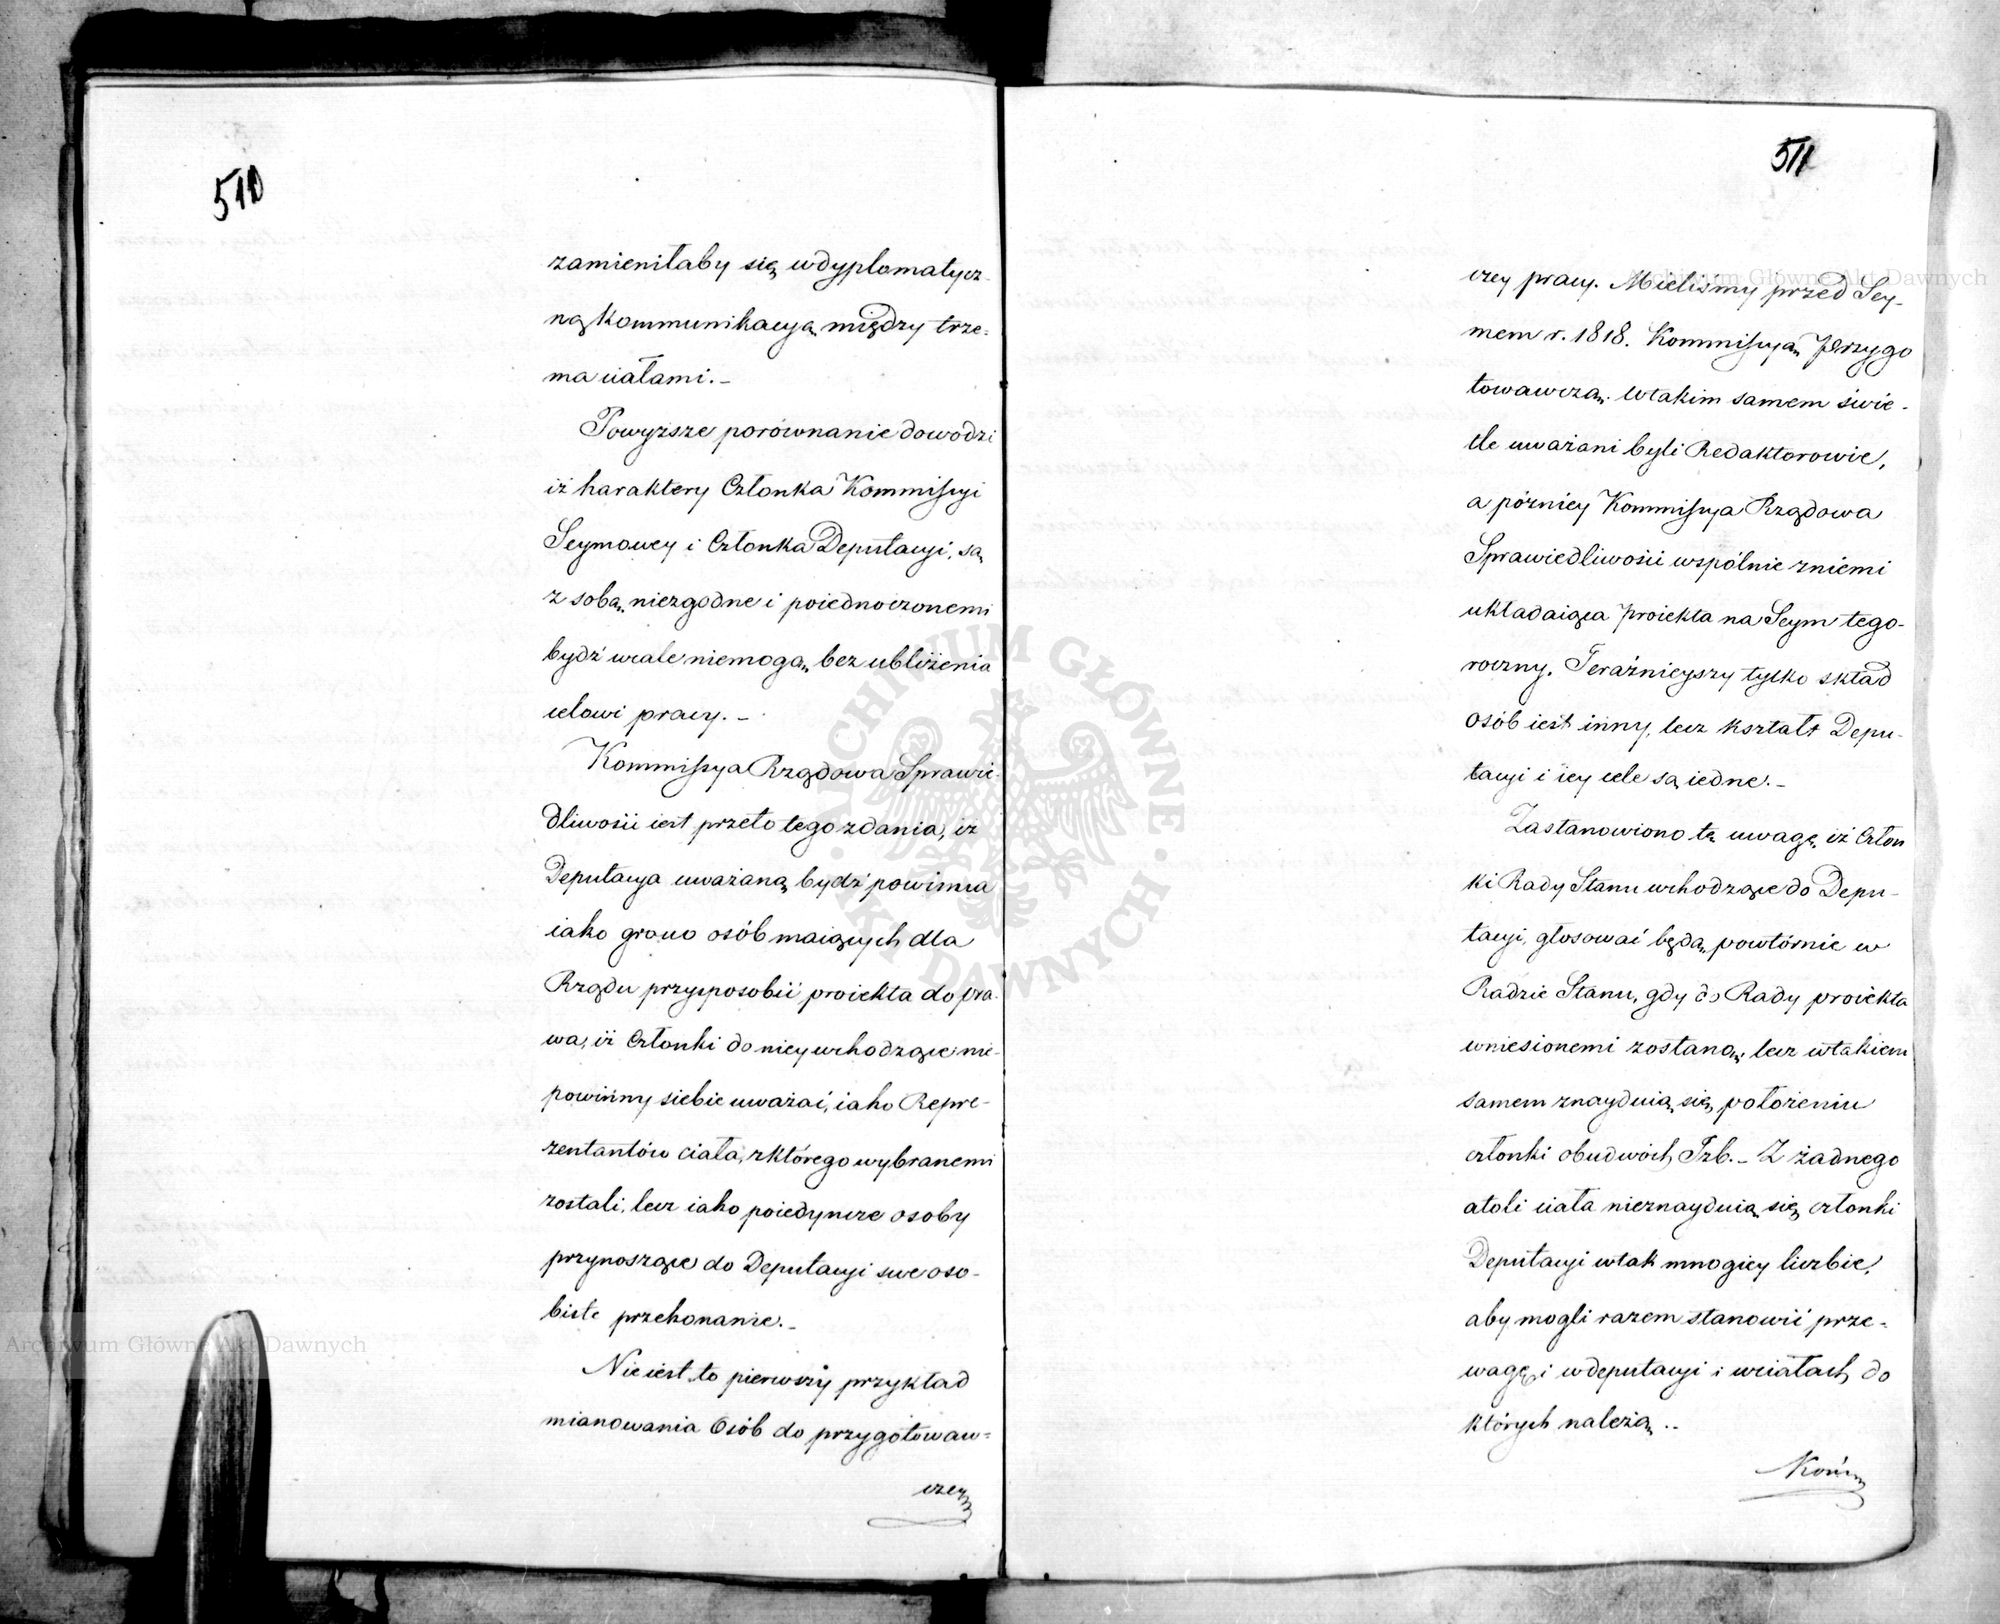 510
zamieniłaby się w dyplomatycz-
ną kommunikacyą między trze-
ma ciałami.-
Powyższe porównanie dowodzi
iż haraktery Członka Kommissyi
Seymowey i Członka Deputacyi, są
z sobą niezgodne i poiednoczonemi
bydź wcale niemogą, bez ubliżenia
celowi pracy.-
Kommissya Rządowa Sprawie-
dliwości iest przeto tego zdania, iż
Deputacya uważaną bydź powinna
iako grono osób maiących dla
Rządu przysposobić proiekta do pra-
wa, iż Członki do niey wchodzące nie-
powinny siebie uważać, iako Repre-
zentantów ciała, z którego wybranemi
zostali, lecz iako poiedyncze osoby
przynoszące do Deputacyi swe oso-
biste przekonanie.-
Nie iest to pierwszy przykład
mianowania Osób do przygotowaw-
czey
511
czey pracy. Mieliśmy przed Sey-
mem r. 1818. Kommissyą Przygo
towawczą. W takim samem świe-
tle uważani byli Redaktorowie,
a późniey Kommissya Rządowa
Sprawiedliwości wspólnie z niemi
układaiąca proiekta na Seym tego-
roczny. Teraźnieyszy tylko skład
osób iest inny, lecz kształt Depu-
tacyi i iey cele są iedne.-
Zastanowiono tę uwagę, iż Człon
ki Rady Stanu wchodzące do Depu-
tacyi, głosować będą powtórnie w
Radzie Stanu, gdy do Rady proiekta
wniesionemi zostaną, lecz w takiem
samem znayduią się położeniu
członki obudwóch Izb.- Z żadnego
atoli ciała nieznayduią się członki
Deputacyi w tak mnogiey liczbie,
aby mogli razem stanowić prze-
wagę i w deputacyi i w ciałach do
których należą.-
Archiwum Główne Akt Dawnych
Archiwum Główne Akt Dawnych
ARCHIWUM GŁÓWNE AKT DAWNYCH